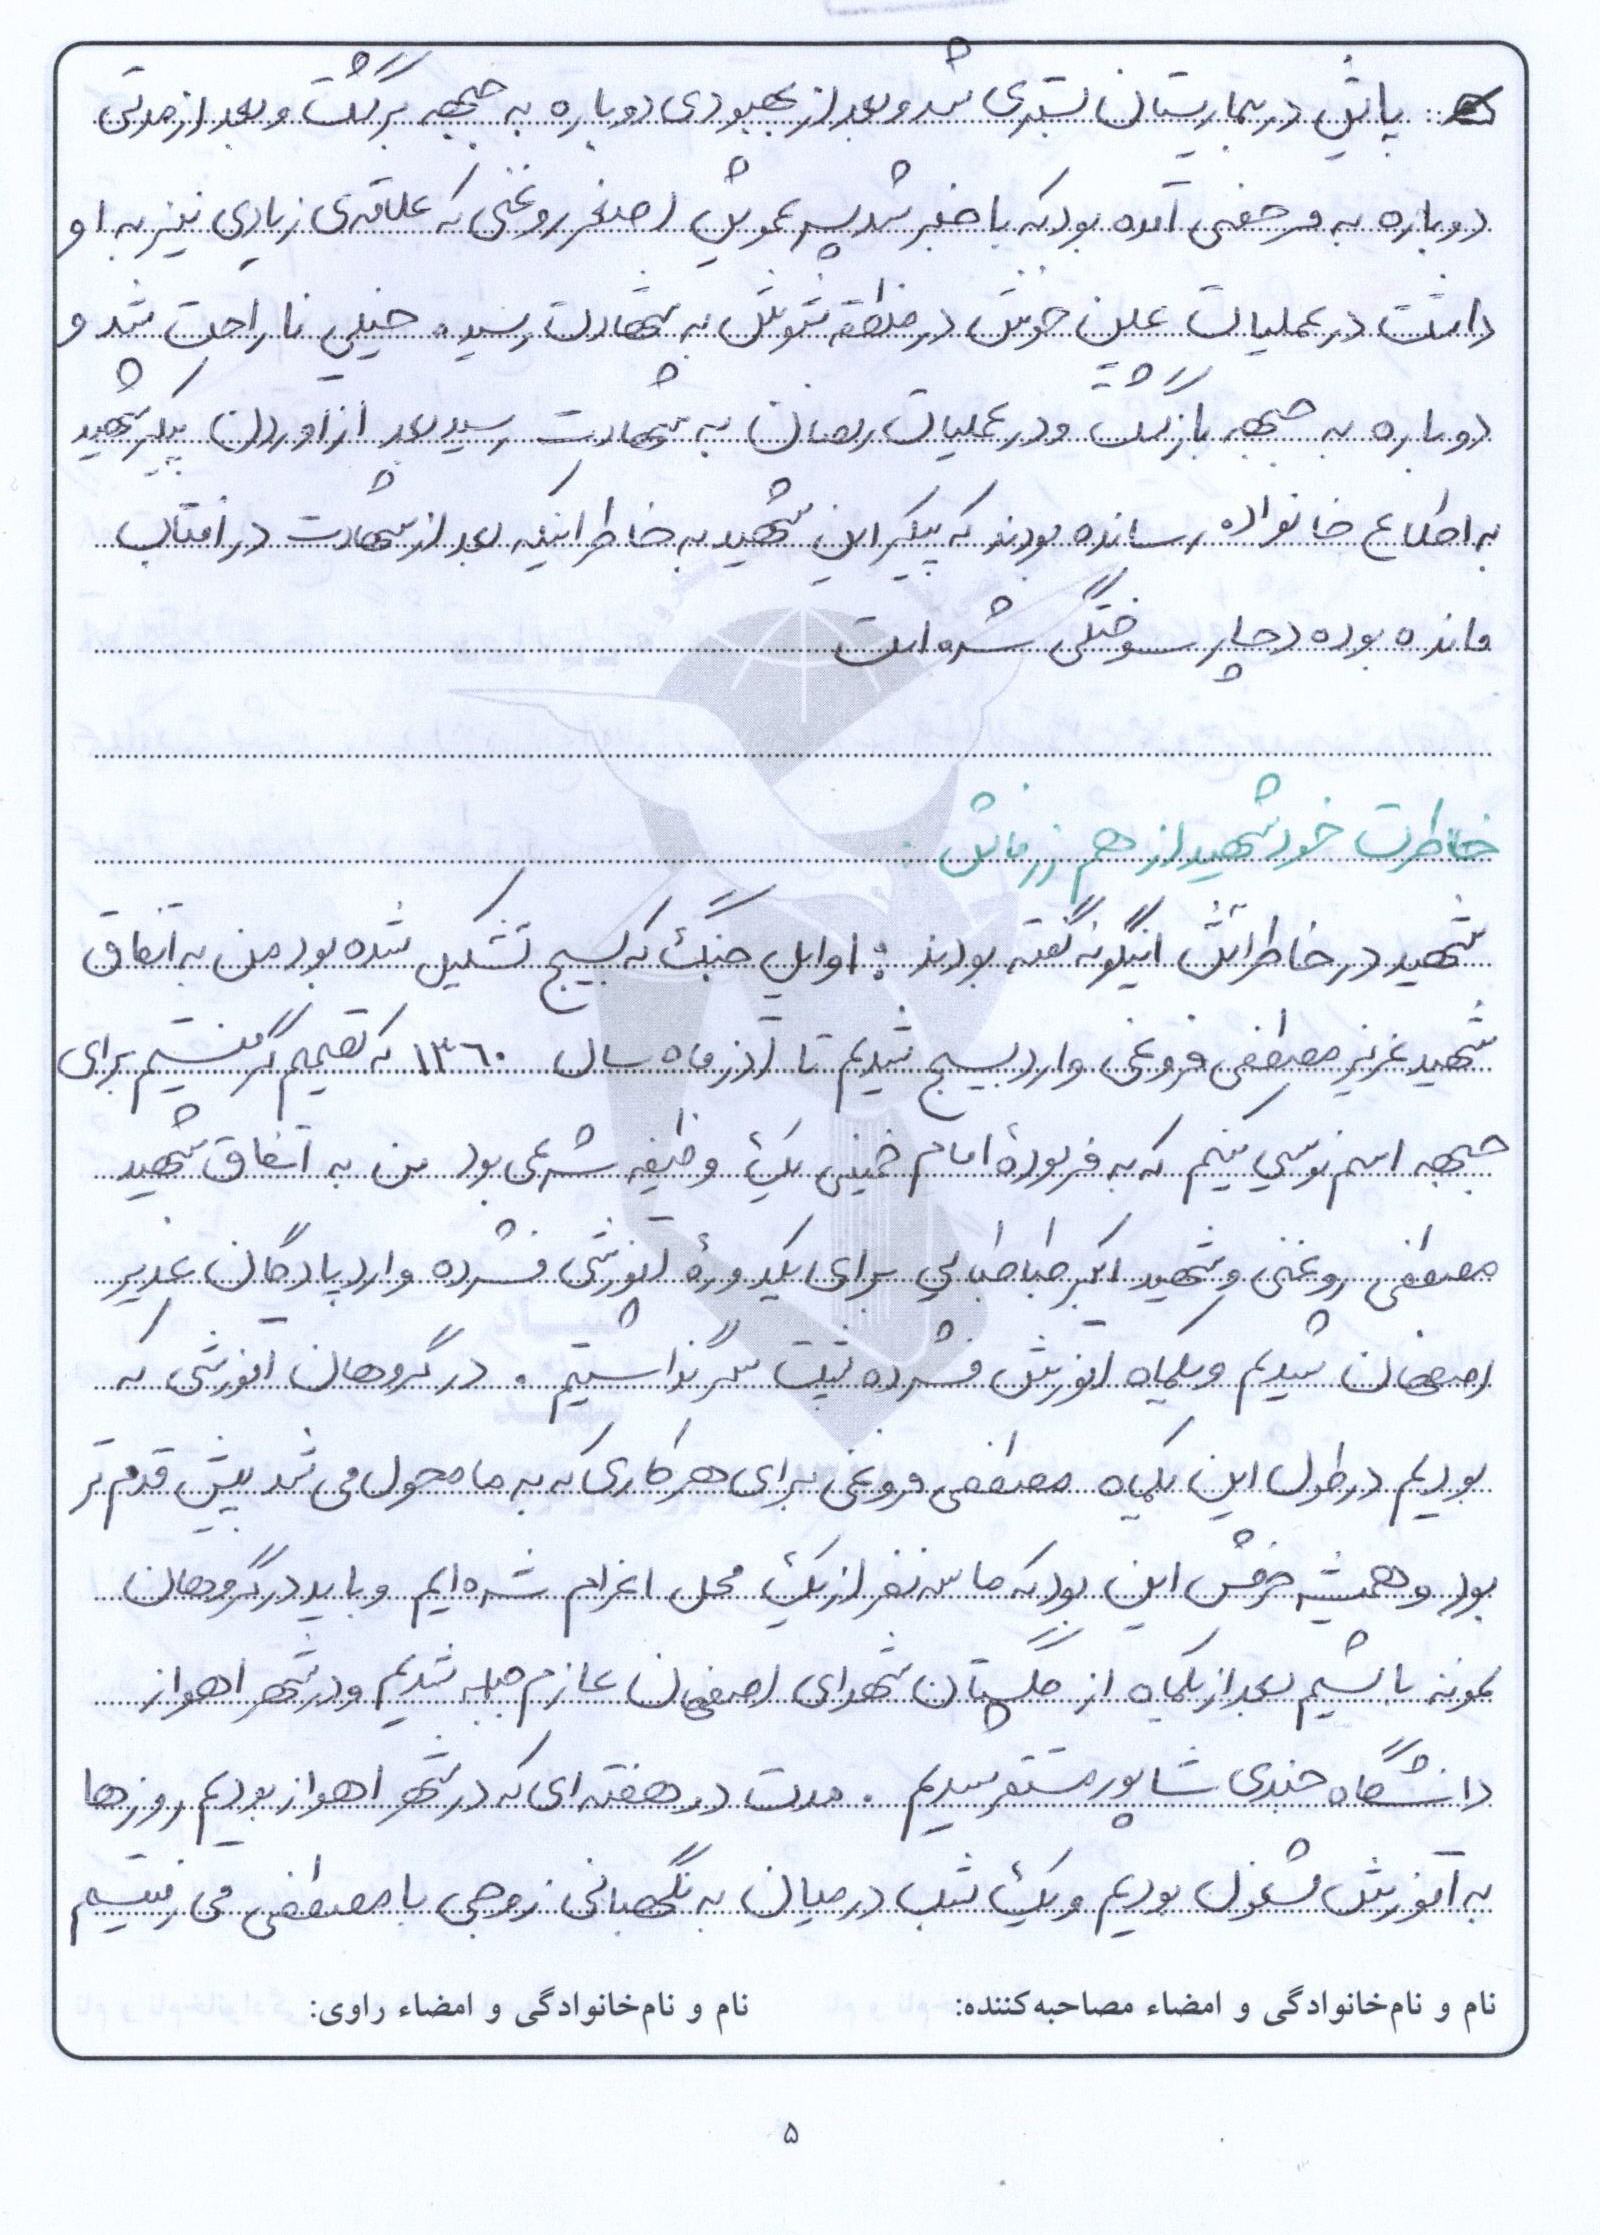 پاش در بیمارستان بستری شد و بعد از بهبودی دوباره به جبهه برگشت و بعد از مدتی
دوباره به مرخصی آمده بود که با خبر شد پسر عمویش اصغر روغنی که علاقه‌ی زیادی نیز به او
داشت در عملیات علین خویش در منطقه شوش به شهادت رسیده. خیلی ناراحت شد و
دوباره به جبهه بازگشت و در عملیات رمضان به شهادت رسید بعد از آوردن پیکر شهید
به اطلاع خانواده رسانده بودند که پیکر این شهید به خاطر اینکه بعد از شهادت در افتاب
مانده بوده دچار سوختگی شده است
خاطرت خود شهید از هم رزمانش :
شهید در خاطراتش اینگونه گفته بودند : اوایل جنگ که بسیج تشکیل شده بود من به اتفاق
شهید عزیز مصطفی فروغی وارد بسیج شدیم تا آذر ماه سال ۱۳۶۰ که تصمیم گرفتیم برای
جبهه اسم نویسی کنیم که به فرمودهٔ امام خمینی یک وظیفه شرعی بود من به اتفاق شهید
مصطفی روغنی و شهید اکبر طباطبایی برای یکدورهٔ آموزشی فشرده وارد پادگان غدیر
اصفهان شدیم و یکماه اموزش فشرده پشت سر گذاشتیم . در گروهان اموزشی که
بودیم در طول این یکماه مصطفی فروغی برای هر کاری که به ما محول می شد پیش قدم تر
بود و همیشه حرفش این بود که ما سه نفر از یک محل اعزام شده ایم و باید در گروهان
نمونه باشیم بعد از یکماه از گلستان شهدای اصفهان عازم جبهه شدیم و در شهر اهواز
دانشگاه جندی شاپور مستقر شدیم . مدت دو هفته ای که در شهر اهواز بودیم روزها
به آموزش مشغول بودیم و یک شب در میان به نگهبانی زوجی با مصطفی می رفتیم
نام و نام‌خانوادگی و امضاء مصاحبه‌کننده: نام و نام‌خانوادگی و امضاء راوی:
۵